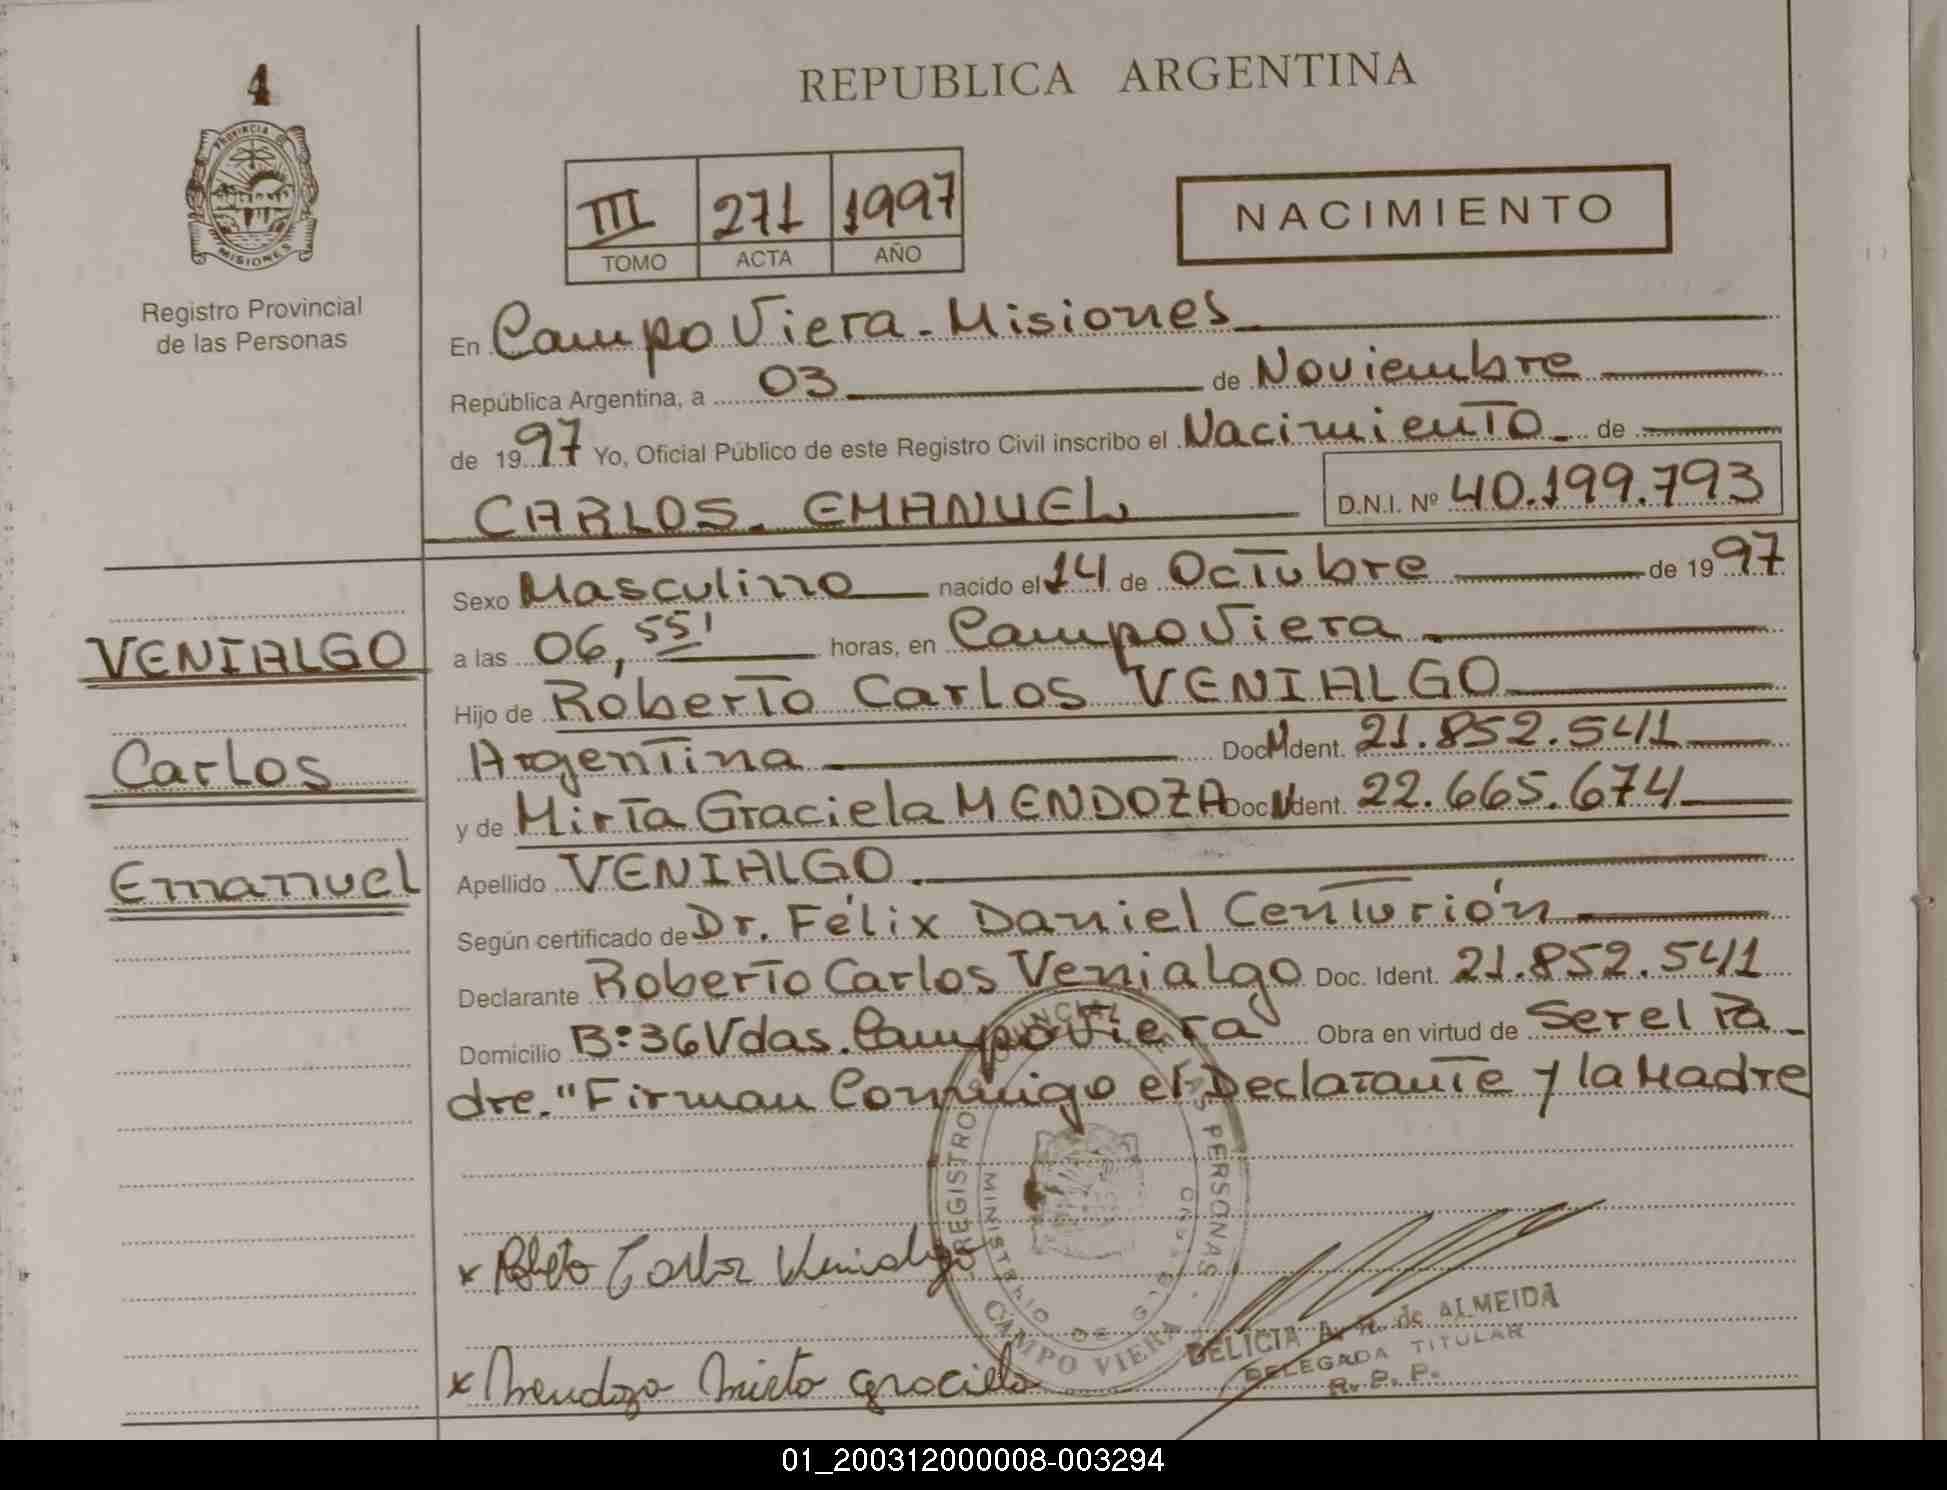 4
PROVINCIA DE
MISIONES
Registro Provincial
de las Personas
VENIALGO
Carlos
Emanuel
REPUBLICA ARGENTINA
III 271 1997
TOMO ACTA AÑO
NACIMIENTO
En Campo Viera - Misiones
República Argentina, a 03 de Noviembre
de 1997 Yo, Oficial Público de este Registro Civil inscribo el Nacimiento de
CARLOS EMANUEL D.N.I. Nº 40.199.793
Sexo Masculino nacido el 14 de Octubre de 1997
a las 06,55' horas, en Campo Viera
Hijo de Roberto Carlos VENIALGO
Argentina Doc. Ident. 21.852.541
y de Mirta Graciela MENDOZA Doc. Ident. 22.665.674
Apellido VENIALGO
Según certificado de Dr. Félix Daniel Centurión
Declarante Roberto Carlos Venialgo Doc. Ident. 21.852.541
Domicilio B: 36 Vdas. Campo Viera Obra en virtud de Ser el Pa-
dre. "Firman Conmigo el Declarante y la Madre
REGISTRO PERSONAS
MINISTERIO DE
CAMPO VIERA
x Roberto Carlos Venialgo
x Mendoza Mirta Graciela
DELICIA A. de ALMEIDA
DELEGADA TITULAR
R. P. P.
01_200312000008-003294